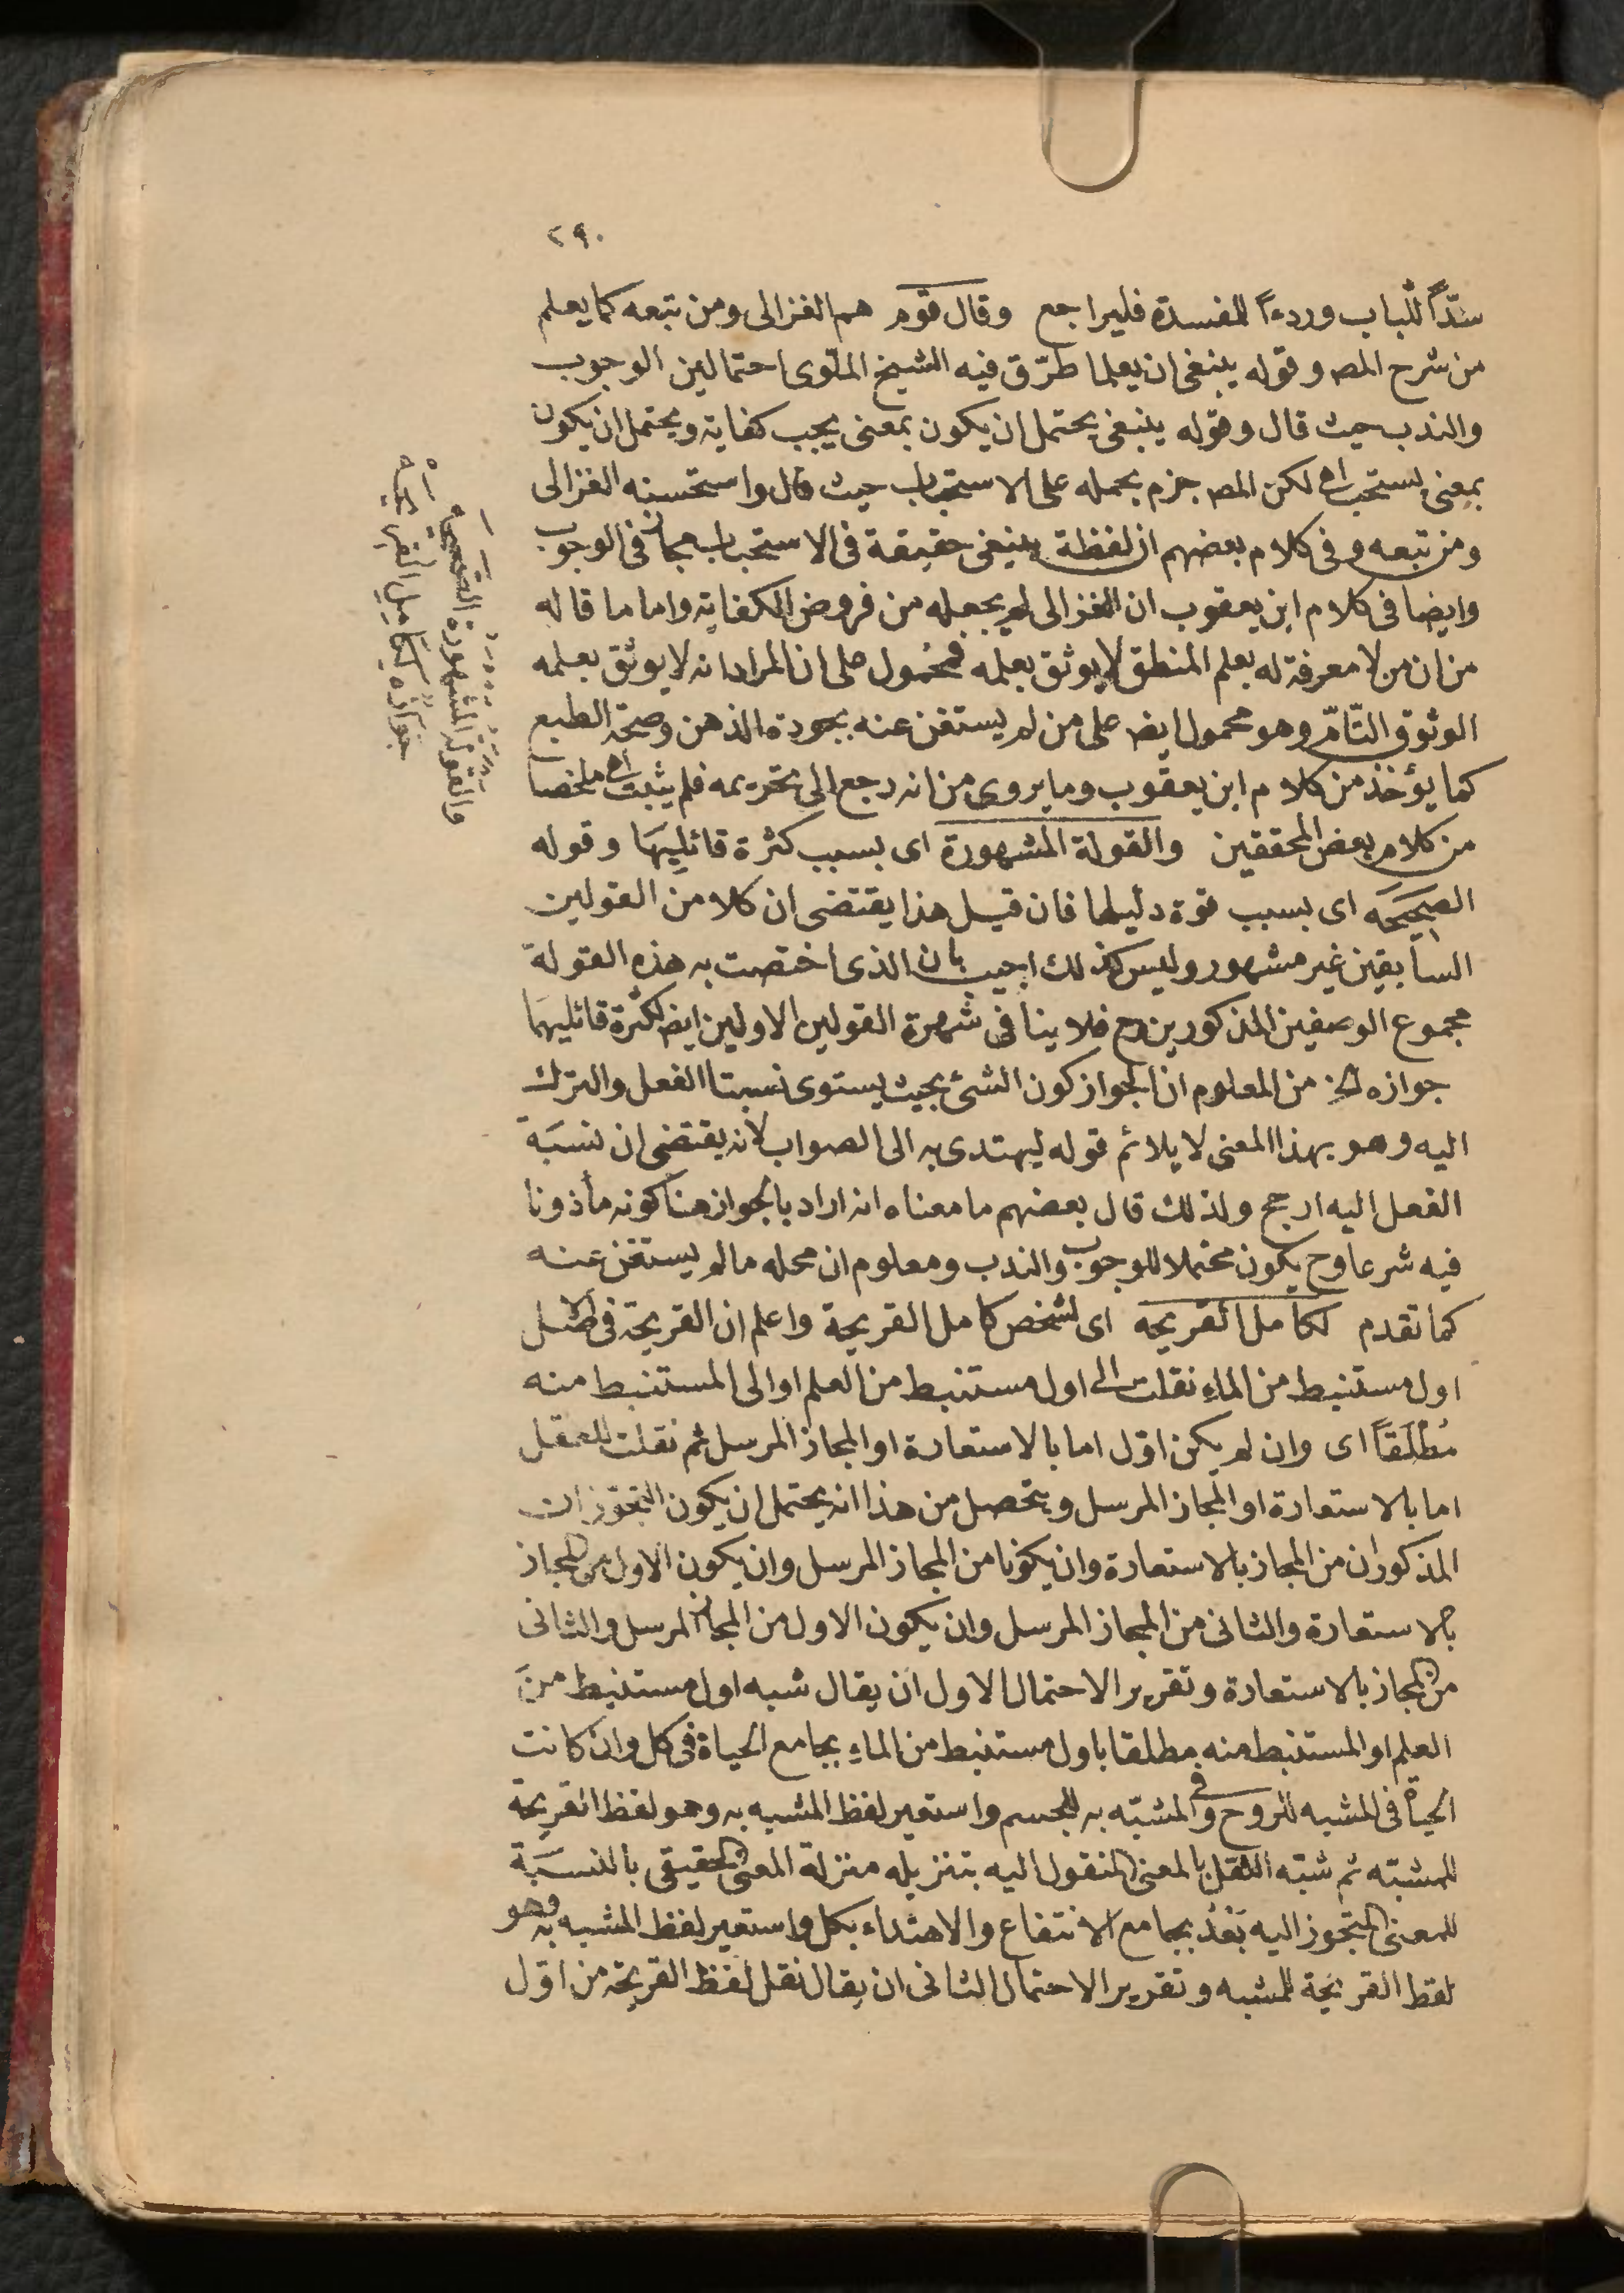 ٢٩٠
سدّاً للباب وردءاً للمفسدة فليراجع وقال قوم هم الغزالى ومن تبعه كما يعلم
من شرح المص وقوله ينبغى ان يعلما طرّق فيه الشيخ الملّوى احتمالين الوجوب
والندب حيث قال وقوله ينبغى يحتمل ان يكون بمعنى يجب كفاية ويحتمل ان يكون
بمعنى يستحب اه لكن المص جزم بحمله على الاستحباب حيث قال واستحسنه الغزالى
ومن تبعه وفى كلام بعضهم ان لفظة ينبغى حقيقة فى الاستحباب مجاز فى الوجوب
وايضا فى كلام ابن يعقوب ان الغزالى لم يجعله من فروض الكفاية واما ما قاله
من ان من لا معرفة له بعلم المنطق لا يوثق بعلمه فمحمول على ان المراد انه لا يوثق بعلمه
الوثوق التّامّ وهو محمول ايض على من لم يستغن عنه بجودة الذهن وصحة الطبع
كما يؤخذ من كلام ابن يعقوب وما يروى من انه رجع الى تحريمه فلم يثبت اه ملخصا
من كلام بعض المحققين والقولة المشهورة اى بسبب كثرة قائليها وقوله
الصحيحه اى بسبب قوة دليلها فان قيل هذا يقتضى ان كلا من القولين
السابقين غير مشهور وليس كذلك اجيب بان الذى اختصت به هذه القولة
مجموع الوصفين المذكورين وح فلا ينافى شهرة القولين الاولين ايض لكثرة قائليهما
جوازه الخ من المعلوم ان الجواز كون الشئ بحيث يستوى نسبتا الفعل والترك
اليه وهو بهذا المعنى لا يلائم قوله ليهتدى به الى الصواب لانه يقتضى ان نسبة
الفعل اليه ارجح ولذلك قال بعضهم ما معناه انه اراد بالجواز هنا كونه مأذونا
فيه شرعا وح يكون محتملا للوجوب والندب ومعلوم ان محله ما لم يستغن عنه
كما تقدم لكامل القريحه اى لشخص كامل القريحة واعلم ان القريحة فى الاصل
اول مستنبط من الماء نقلت الى اول مستنبط من العلم او الى المستنبط منه
مُطْلَقاً اى وان لم يكن اوّل اما بالاستعارة او المجاز المرسل ثم نقلت للعقل
اما بالاستعارة او المجاز المرسل ويتحصل من هذا انه يحتمل ان يكون التجوّزان
المذكوران من المجاز بالاستعارة وان يكونا من المجاز المرسل وان يكون الاول من المجاز
بالاستعارة والثانى من المجاز المرسل وان يكون الاول من المجاز المرسل والثانى
من المجاز بالاستعارة وتقرير الاحتمال الاول ان يقال شبه اول مستنبط من
العلم او المستنبط منه مطلقا باول مستنبط من الماء بجامع الحياة فى كل وان كانت
الحياة فى المشبه للروح وفى المشبّه به للجسم واستعير لفظ المشبه به وهو لفظ القريحة
للمشبّه ثم شبّه العقل بالمعنى المنقول اليه بتنزيله منزلة المعنى الحقيقى بالنسبة
للمعنى المتجوز اليه بَعْدُ بجامع الانتفاع والاهتداء بكل واستعير لفظ المشبه به وهو
لفظ القريحة للمشبه وتقرير الاحتمال الثانى ان يقال نقل لفظ القريحة من اوّل
والقولة المشهورة الصحيحه
جوازه لكامل القريحه